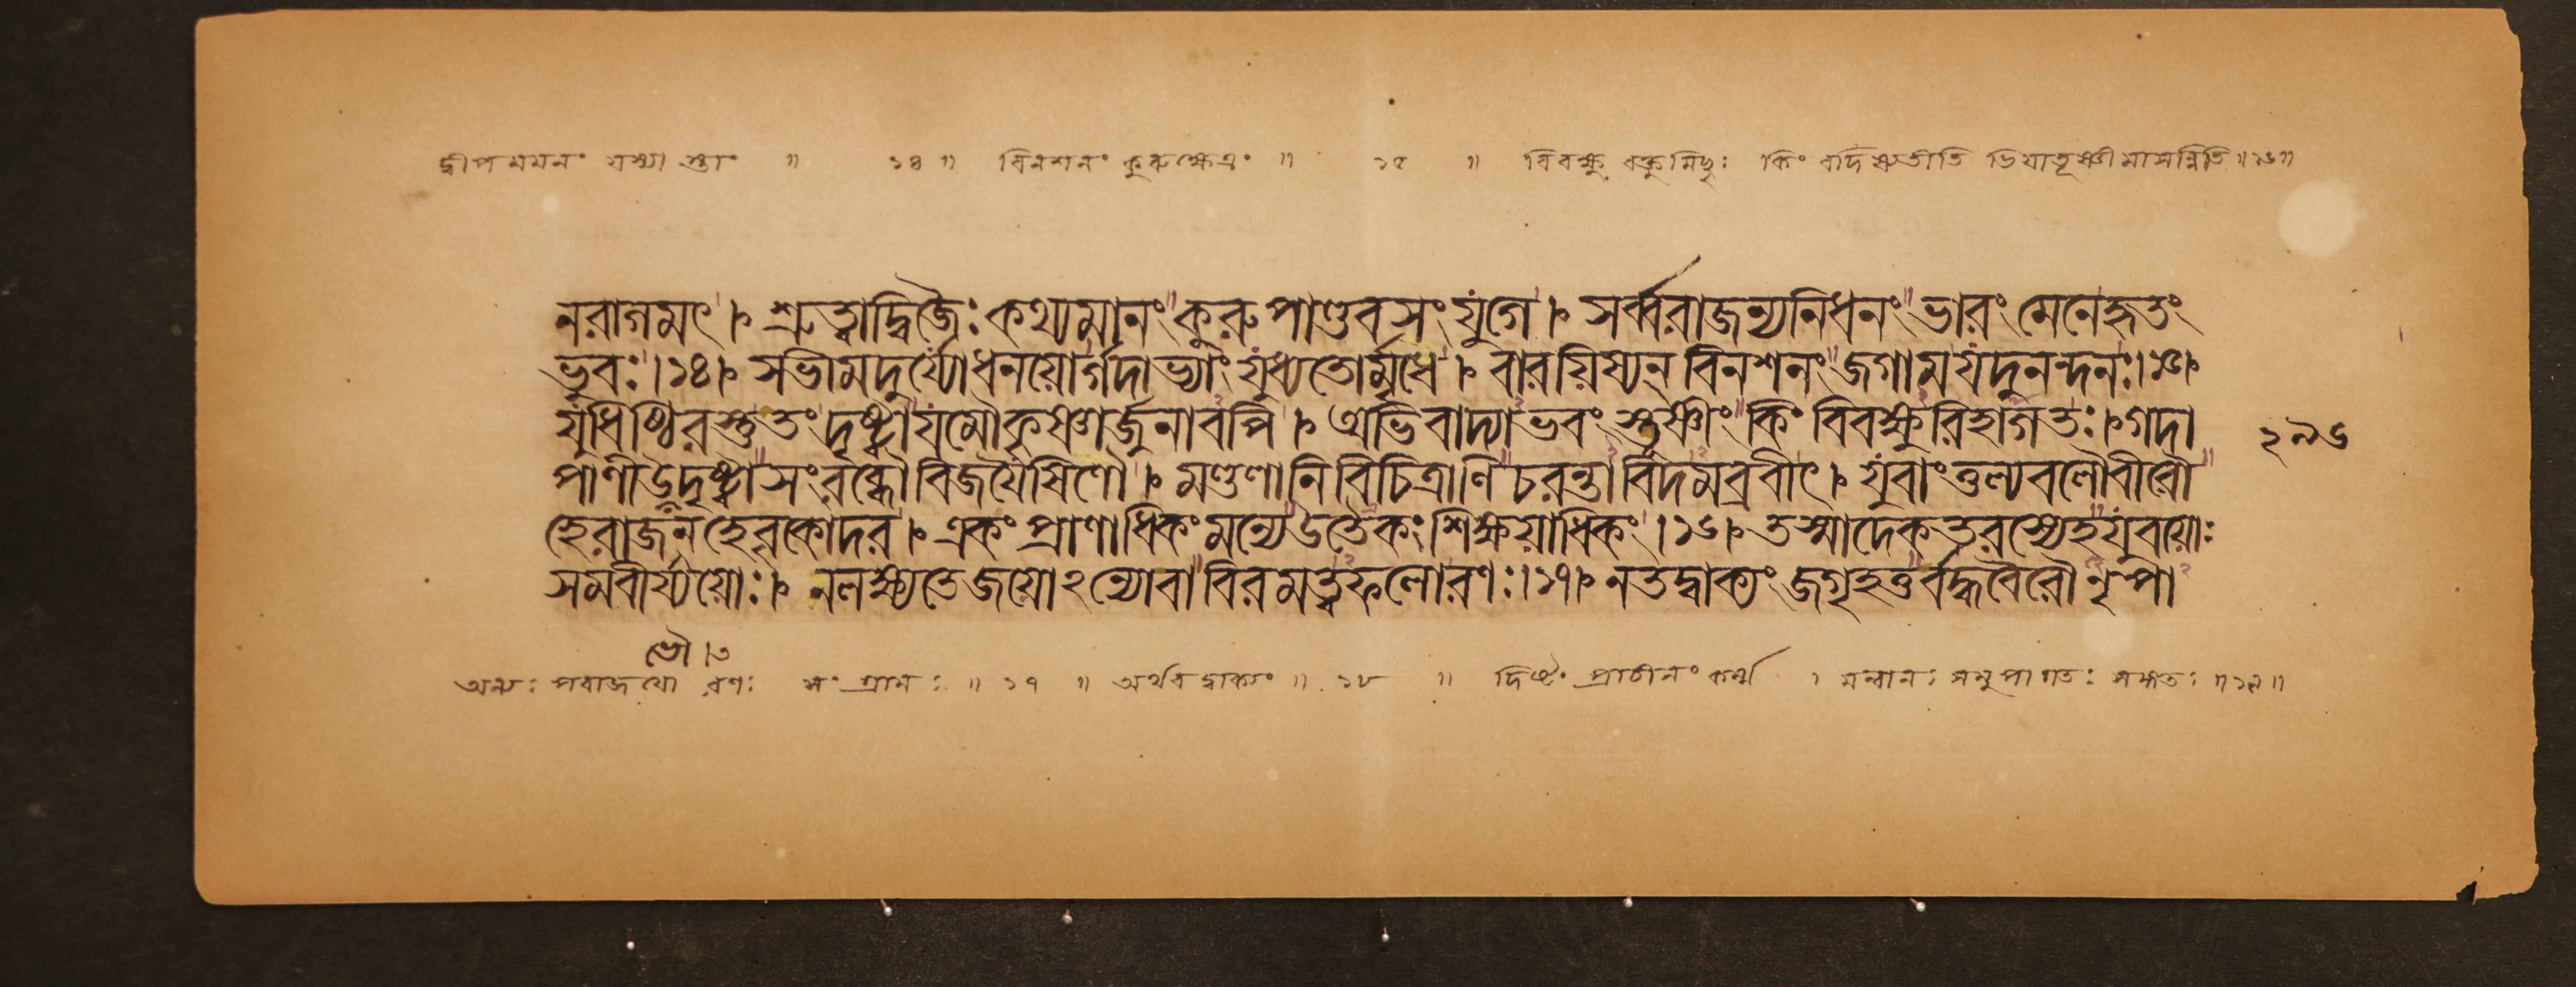 দ্বীপমযনং যস্যা স্তাং ॥ ১৪ ॥ বিনশনং কুরুক্ষেত্রং ॥ ১৫ ॥ বিবক্ষু র্বক্তুমিচ্ছুঃ কিং বদিষ্যতীতি ভিয়াতূষ্ণীমাসন্নিতি ॥ ১৬ ॥
নরাগমৎ । শ্রুত্বাদ্বিজৈঃ কথ্যমানং কুরুপাণ্ডবসংযুগে । সর্ব্বরাজন্যনিধনং ভারং মেনেহৃতং
ভুবঃ । ১৪ । সভীমদুর্য্যোধনয়োর্গদাভ্যাং যুধ্যতোর্মৃধে । বারয়িষ্যন্ বিনশনং জগামযদুনন্দনঃ । ১৫ ।
যুধিষ্ঠিরস্তুতং দৃষ্ট্বাযমৌকৃষ্ণার্জুনাবপি । অভিবাদ্যাভবংস্তুষ্ণীং কিং বিবক্ষুরিহাগতঃ । গদা
পাণীউভৌদৃষ্ট্বাসংরব্ধৌবিজয়ৈষিণৌ । মণ্ডলানিবিচিত্রাণিচরন্তাবিদমব্রবীৎ । যুবাংতুল্যবলৌবীরৌ
হেরাজন্হেবৃকোদর । একং প্রাণাধিকংমন্যেউতৈকং শিক্ষয়াধিকং । ১৬ । তস্মাদেকতরস্যেহযুবয়োঃ
সমবীর্য্যয়োঃ । নলক্ষ্যতেজয়োঽন্যোবাবিরমত্বফলোরণঃ । ১৭ । নতদ্বাক্যং জগৃহতুর্বদ্ধবৈরৌনৃপা
২৯৬
অন্যঃ পরাজয়ো রণঃ সংগ্রামঃ ॥ ১৭ ॥ অর্থবদ্বাক্যং ॥ ১৮ ॥ দিষ্টং প্রাচীনং কর্ম্ম । মন্বানঃ